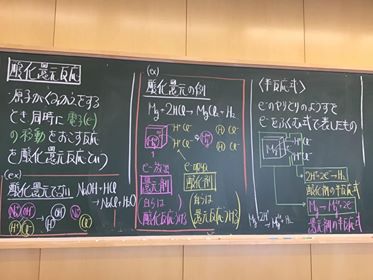 酸化還元反応
原子がくみかえをする
とき同時に電子(e⁻)
の移動をおこす反応
を酸化還元反応という
(ex)
酸化還元でない NaOH+HCl
→NaCl+H₂O
(ex)
酸化還元の例
Mg+2HCl→MgCl₂+H₂
H⁺ Cl⁻
H⁺ Cl⁻
e⁻放出
還元剤
自らは
酸化反応する
e⁻吸収
酸化剤
自らは
還元反応する
〈半反応式〉
e⁻のやりとりのようすを
e⁻をふくむ式で表したもの
2H⁺+2e⁻→H₂
酸化剤の半反応式
Mg→Mg²⁺+2e⁻
還元剤の半反応式